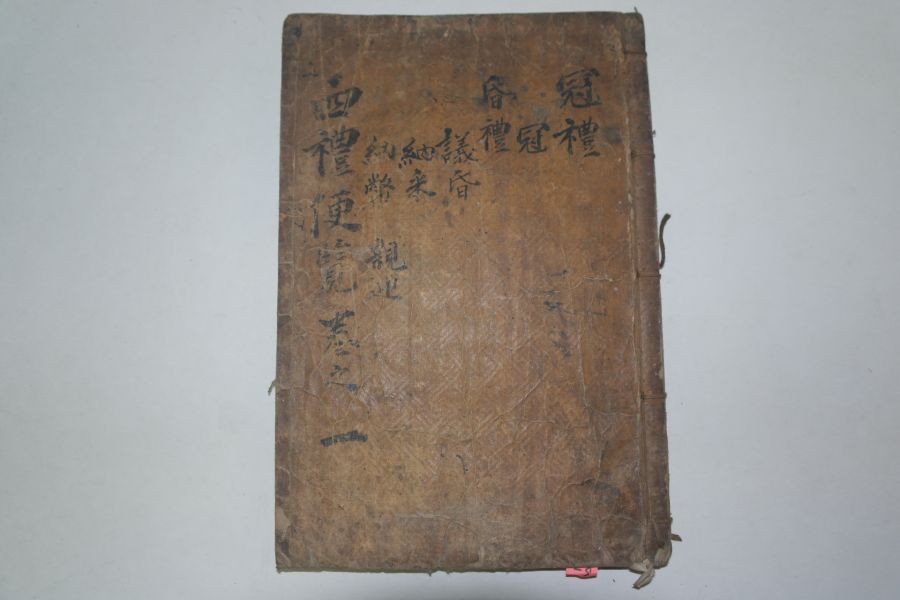 冠禮
冠
昏禮
議昏
納采
納幣 親迎
四禮便覽卷之一